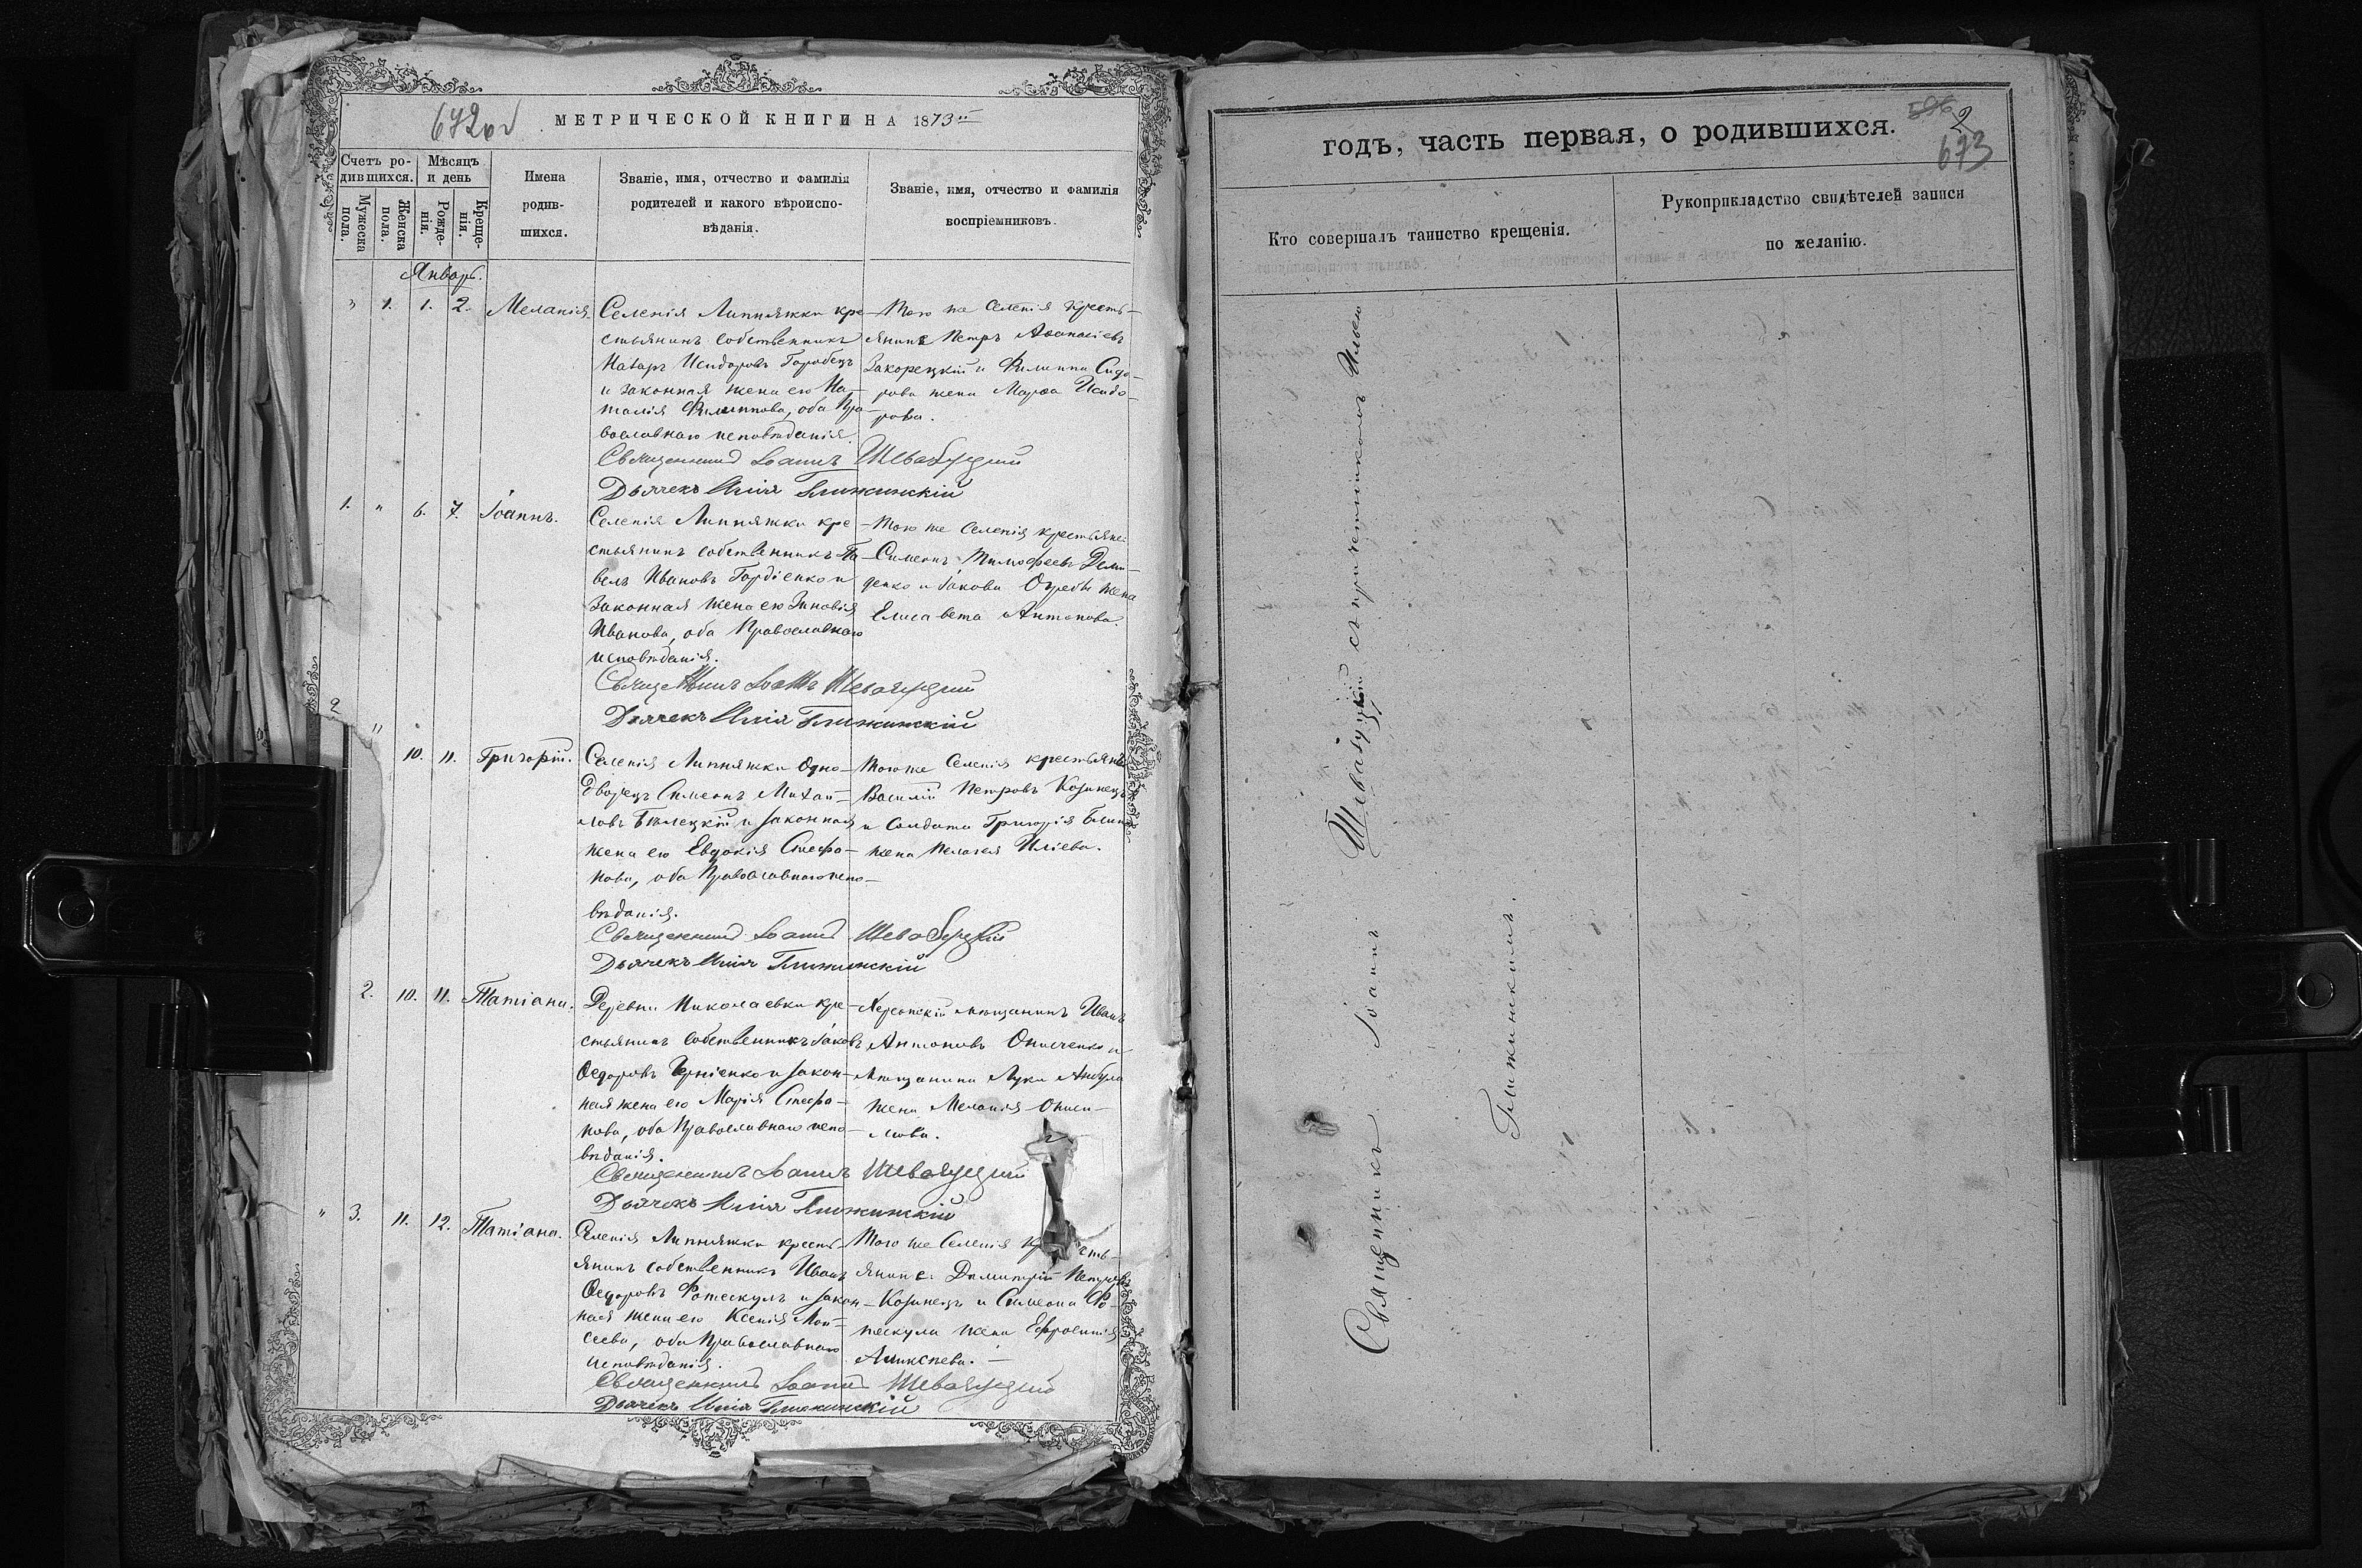 672 об
МЕТРИЧЕСКОЙ КНИГИ НА 1873й
Счетъ ро-
дившихся.
Мѣсяцъ
и день
Мужеска
пола.
Женска
пола.
Рожде-
нія.
Креще-
нія.
Имена
родив-
шихся.
Званіе, имя, отчество и фамилія
родителей и какого вѣроиспо-
вѣданія.
Званіе, имя, отчество и фамилія
воспріемниковъ.
Январь.
" 1. 1. 2. Меланія.
Селенія Липняжки кре-
стьянинъ собственникъ
Назаръ Исидоровъ Горобецъ
и законная жена его На-
талія Филиппова, оба Пра-
вославнаго исповѣданія.
Того же Селенія кресть-
янинъ Петръ Аѳанасіевъ
Закорецкій и Филиппа Сидо-
рова жена Марѳа Исидо-
рова.
Священникъ Іоаннъ Шевазуцкій
Дьячекъ Илія Глижинскій
1. " 6. 7. Іоаннъ.
Селенія Липняжки кре-
стьянинъ собственникъ Па-
велъ Ивановъ Гордіенко и
законная жена его Зиновія
Иванова, оба Православнаго
исповѣданія.
Того же Селенія крестьяне:
Симеонъ Тимофеевъ Деми-
денко и Іакова Огребы жена
Елисавета Антонова.
Священникъ Іоаннъ Шевазуцкій
Дьячекъ Илія Глижинскій
2 " 10. 11. Григорій.
Селенія Липняжки Одно-
дворецъ Симеонъ Михай-
ловъ Бѣлецкій и законная
жена его Евдокія Стефа-
нова, оба Православнаго испо-
вѣданія.
Того же Селенія крестьянинъ
Василій Петровъ Козинецъ
и Солдата Григорія
жена Пелагея Иліева.
Священникъ Іоаннъ Шевазуцкій
Дьячекъ Илія Глижинскій
2. 10. 11. Татіана.
Деревни Николаевки кре-
стьянинъ Собственникъ Іаковъ
Ѳедоровъ Черніенко и закон-
ная жена его Марія Стефа-
нова, оба Православнаго испо-
вѣданія.
Херсонскій мѣщанинъ Иванъ
Антоновъ Онищенко и
мѣщанина Луки
жена Меланія Ониси-
мова.
Священникъ Іоаннъ Шевазуцкій
Дьячекъ Илія Глижинскій
" 3. 11. 12. Татіана.
Селенія Липняжки кресть-
янинъ собственникъ Иванъ
Ѳедоровъ Фотескулъ и закон-
ная жена его Ксенія Мои-
сеева, оба Православнаго
исповѣданія.
Того же Селенія кресть-
яне: Димитрій Петровъ
Козинецъ и Симеона Фо-
тескула жена Ефросинія
Аликсѣева.
Священникъ Іоаннъ Шевазуцкій
Дьячекъ Илія Глижинскій
годъ, часть первая, о родившихся.
2
673
Кто совершалъ таинство крещенія.
Рукоприкладство свидѣтелей записи
по желанію.
Священникъ Іоаннъ Шевазуцкій съ причетникомъ Ильею
Глижинскимъ.